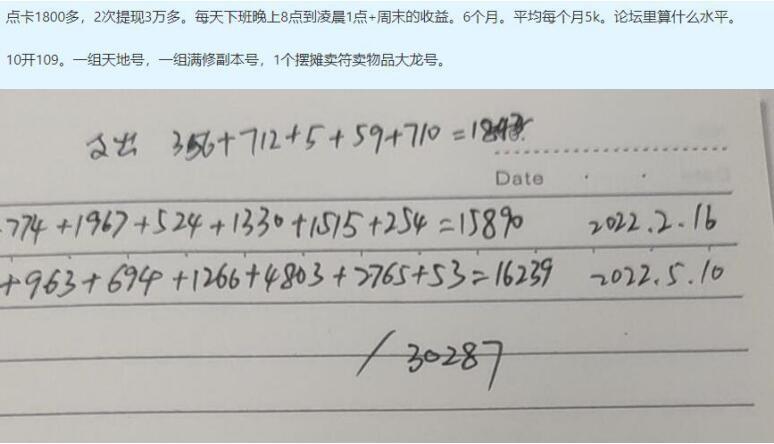 点卡1800多，2次提现3万多。每天下班晚上8点到凌晨1点+周末的收益。6个月。平均每个月5k。论坛里算什么水平。
10开109。一组天地号，一组满修副本号，1个摆摊卖符卖物品大龙号。
支出 356+712+5+59+710=
Date
774+1967+524+1330+1515+254=15890 2022.2.16
+963+694+1266+4803+2765+53=16239 2022.5.10
/30287